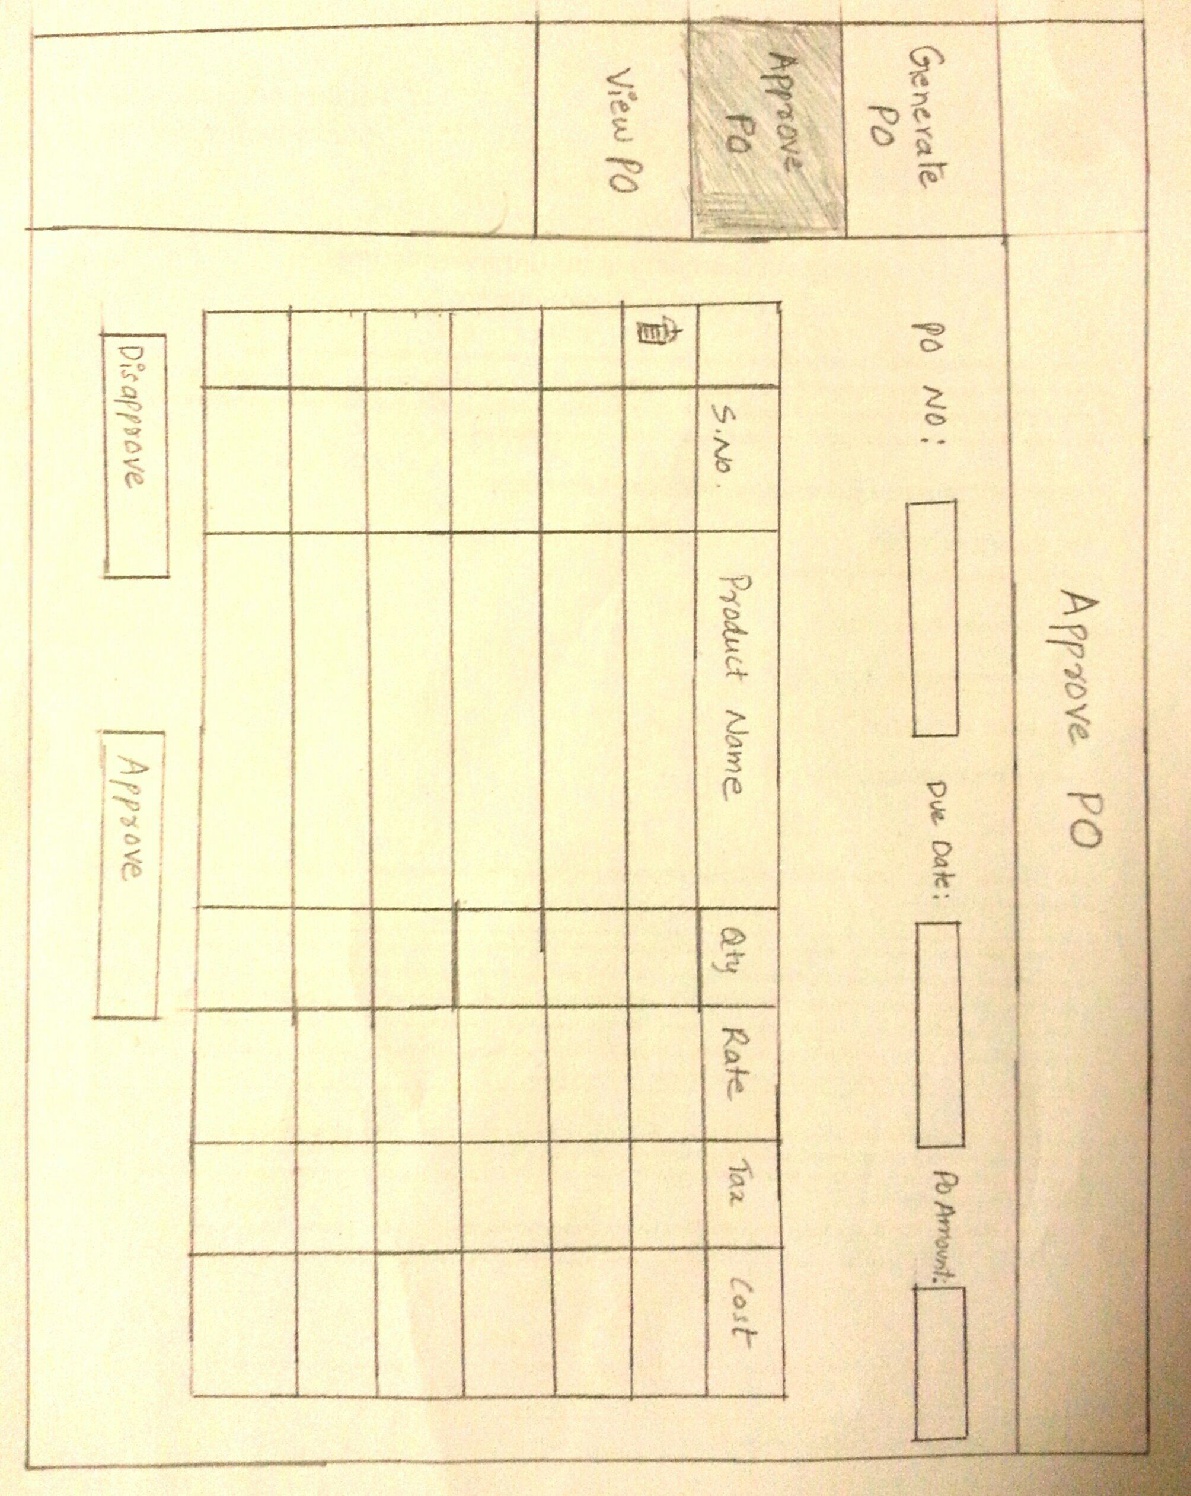 Approve PO
Generate
PO
Approve
PO
View PO
PO NO:
Due Date:
PO Amount:
S.No.
Product Name
Qty
Rate
Tax
Cost
Disapprove
Approve